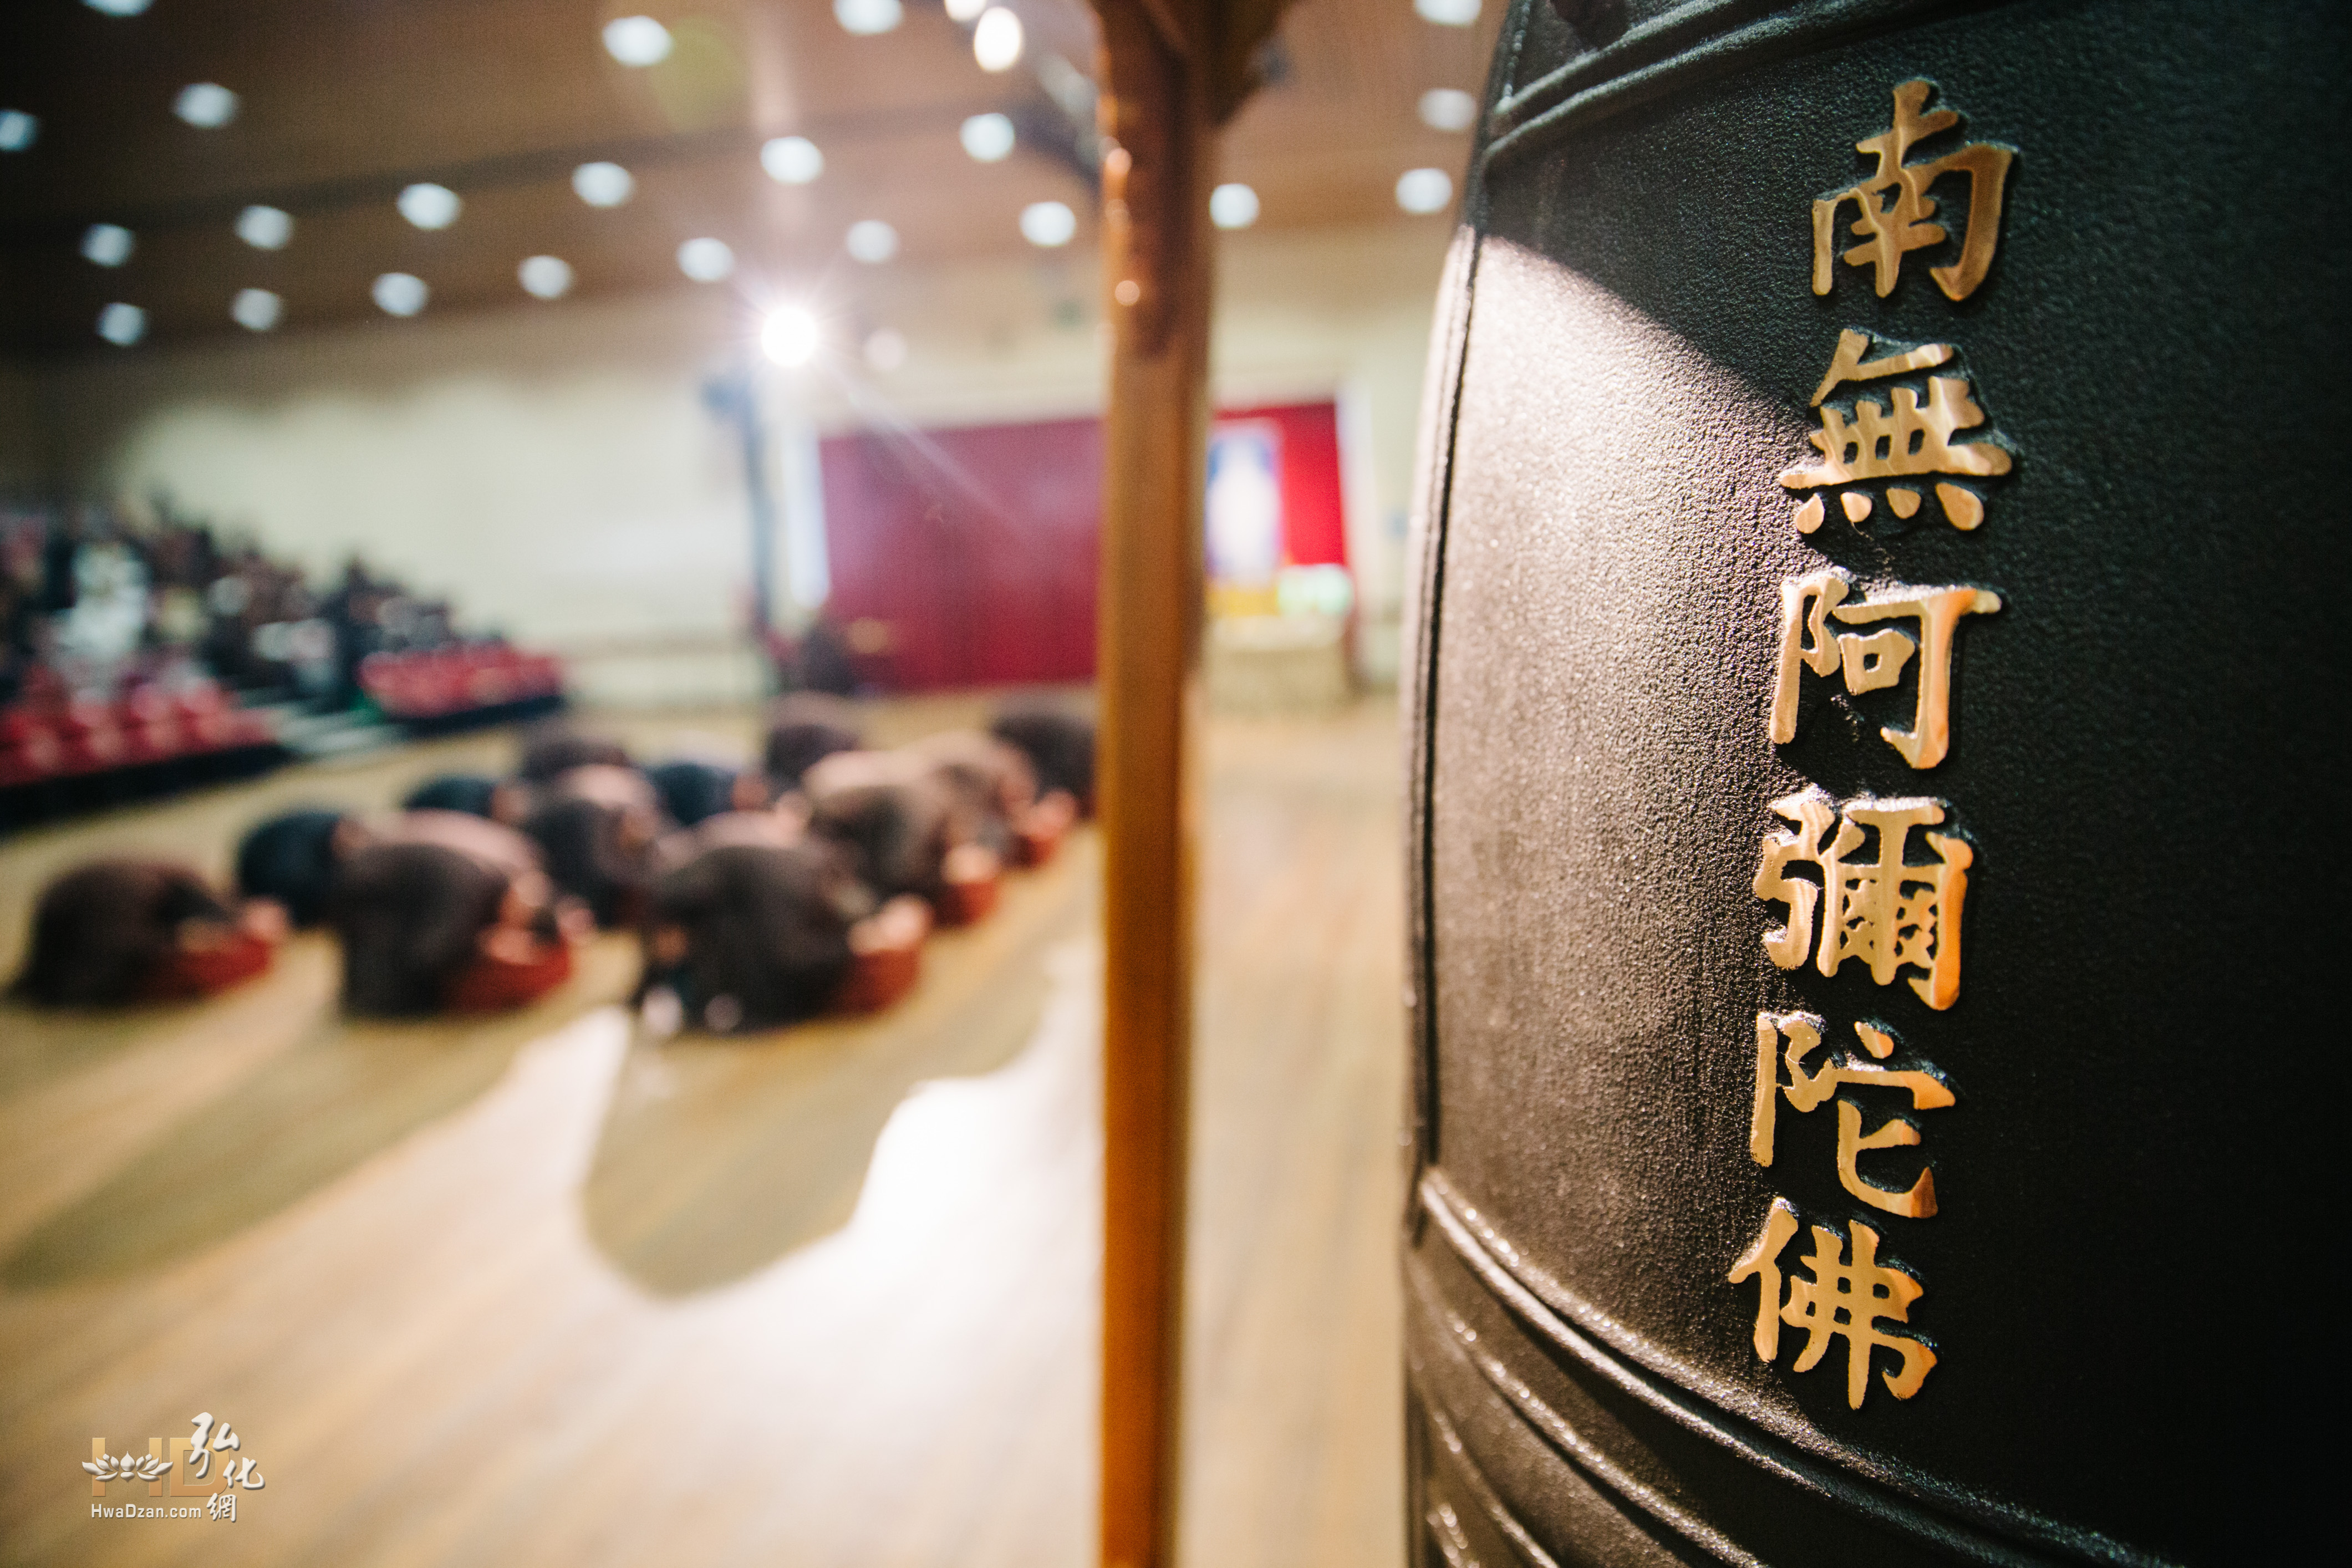 南無阿彌陀佛
HD弘化網
HwaDzan.com